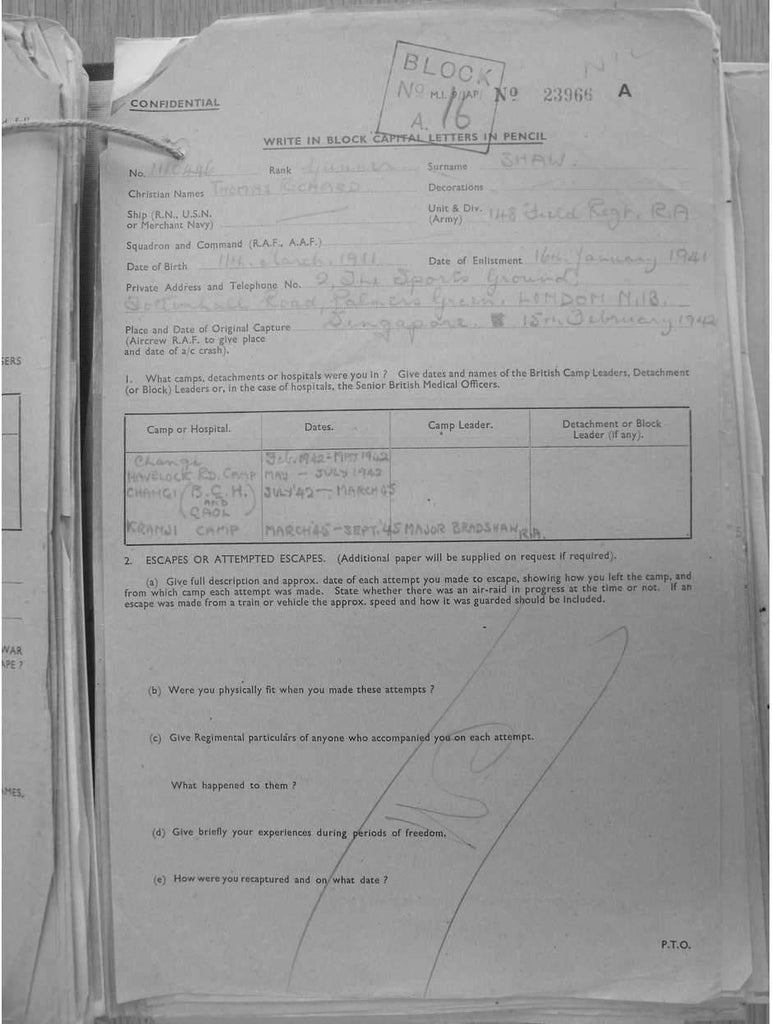 BLOCK
No M.I. 9/JAP/ No 23966 A
A. 16
NIL
CONFIDENTIAL
WRITE IN BLOCK CAPITAL LETTERS IN PENCIL
No. Rank Gunner Surname SHAW.
Christian Names THOMAS RICHARD Decorations
Ship (R.N., U.S.N. or Merchant Navy) Unit & Div. (Army) 148 Field Regt. R.A
Squadron and Command (R.A.F., A.A.F.)
Date of Birth 11th March 1911 Date of Enlistment 16th January 1941
Private Address and Telephone No. 2, The Sports Ground,
Road, Palmers Green, LONDON N.13.
Place and Date of Original Capture Singapore. 15th February 1942
(Aircrew R.A.F. to give place
and date of a/c crash).
1. What camps, detachments or hospitals were you in ? Give dates and names of the British Camp Leaders, Detachment
(or Block) Leaders or, in the case of hospitals, the Senior British Medical Officers.
Camp or Hospital. Dates. Camp Leader. Detachment or Block Leader (if any).
Changi Feb. 1942 - MAY 1942
HAVELOCK RD. CAMP MAY - JULY 1942
CHANGI (B.G.H.) JULY '42 - MARCH 45
AND
GAOL
KRANJI CAMP MARCH '45 - SEPT. '45 MAJOR BRADSHAW R.A.
2. ESCAPES OR ATTEMPTED ESCAPES. (Additional paper will be supplied on request if required).
(a) Give full description and approx. date of each attempt you made to escape, showing how you left the camp, and
from which camp each attempt was made. State whether there was an air-raid in progress at the time or not. If an
escape was made from a train or vehicle the approx. speed and how it was guarded should be included.
(b) Were you physically fit when you made these attempts ?
(c) Give Regimental particulars of anyone who accompanied you on each attempt.
What happened to them ?
(d) Give briefly your experiences during periods of freedom.
(e) How were you recaptured and on what date ?
P.T.O.
ERS
WAR
APE ?
MES,